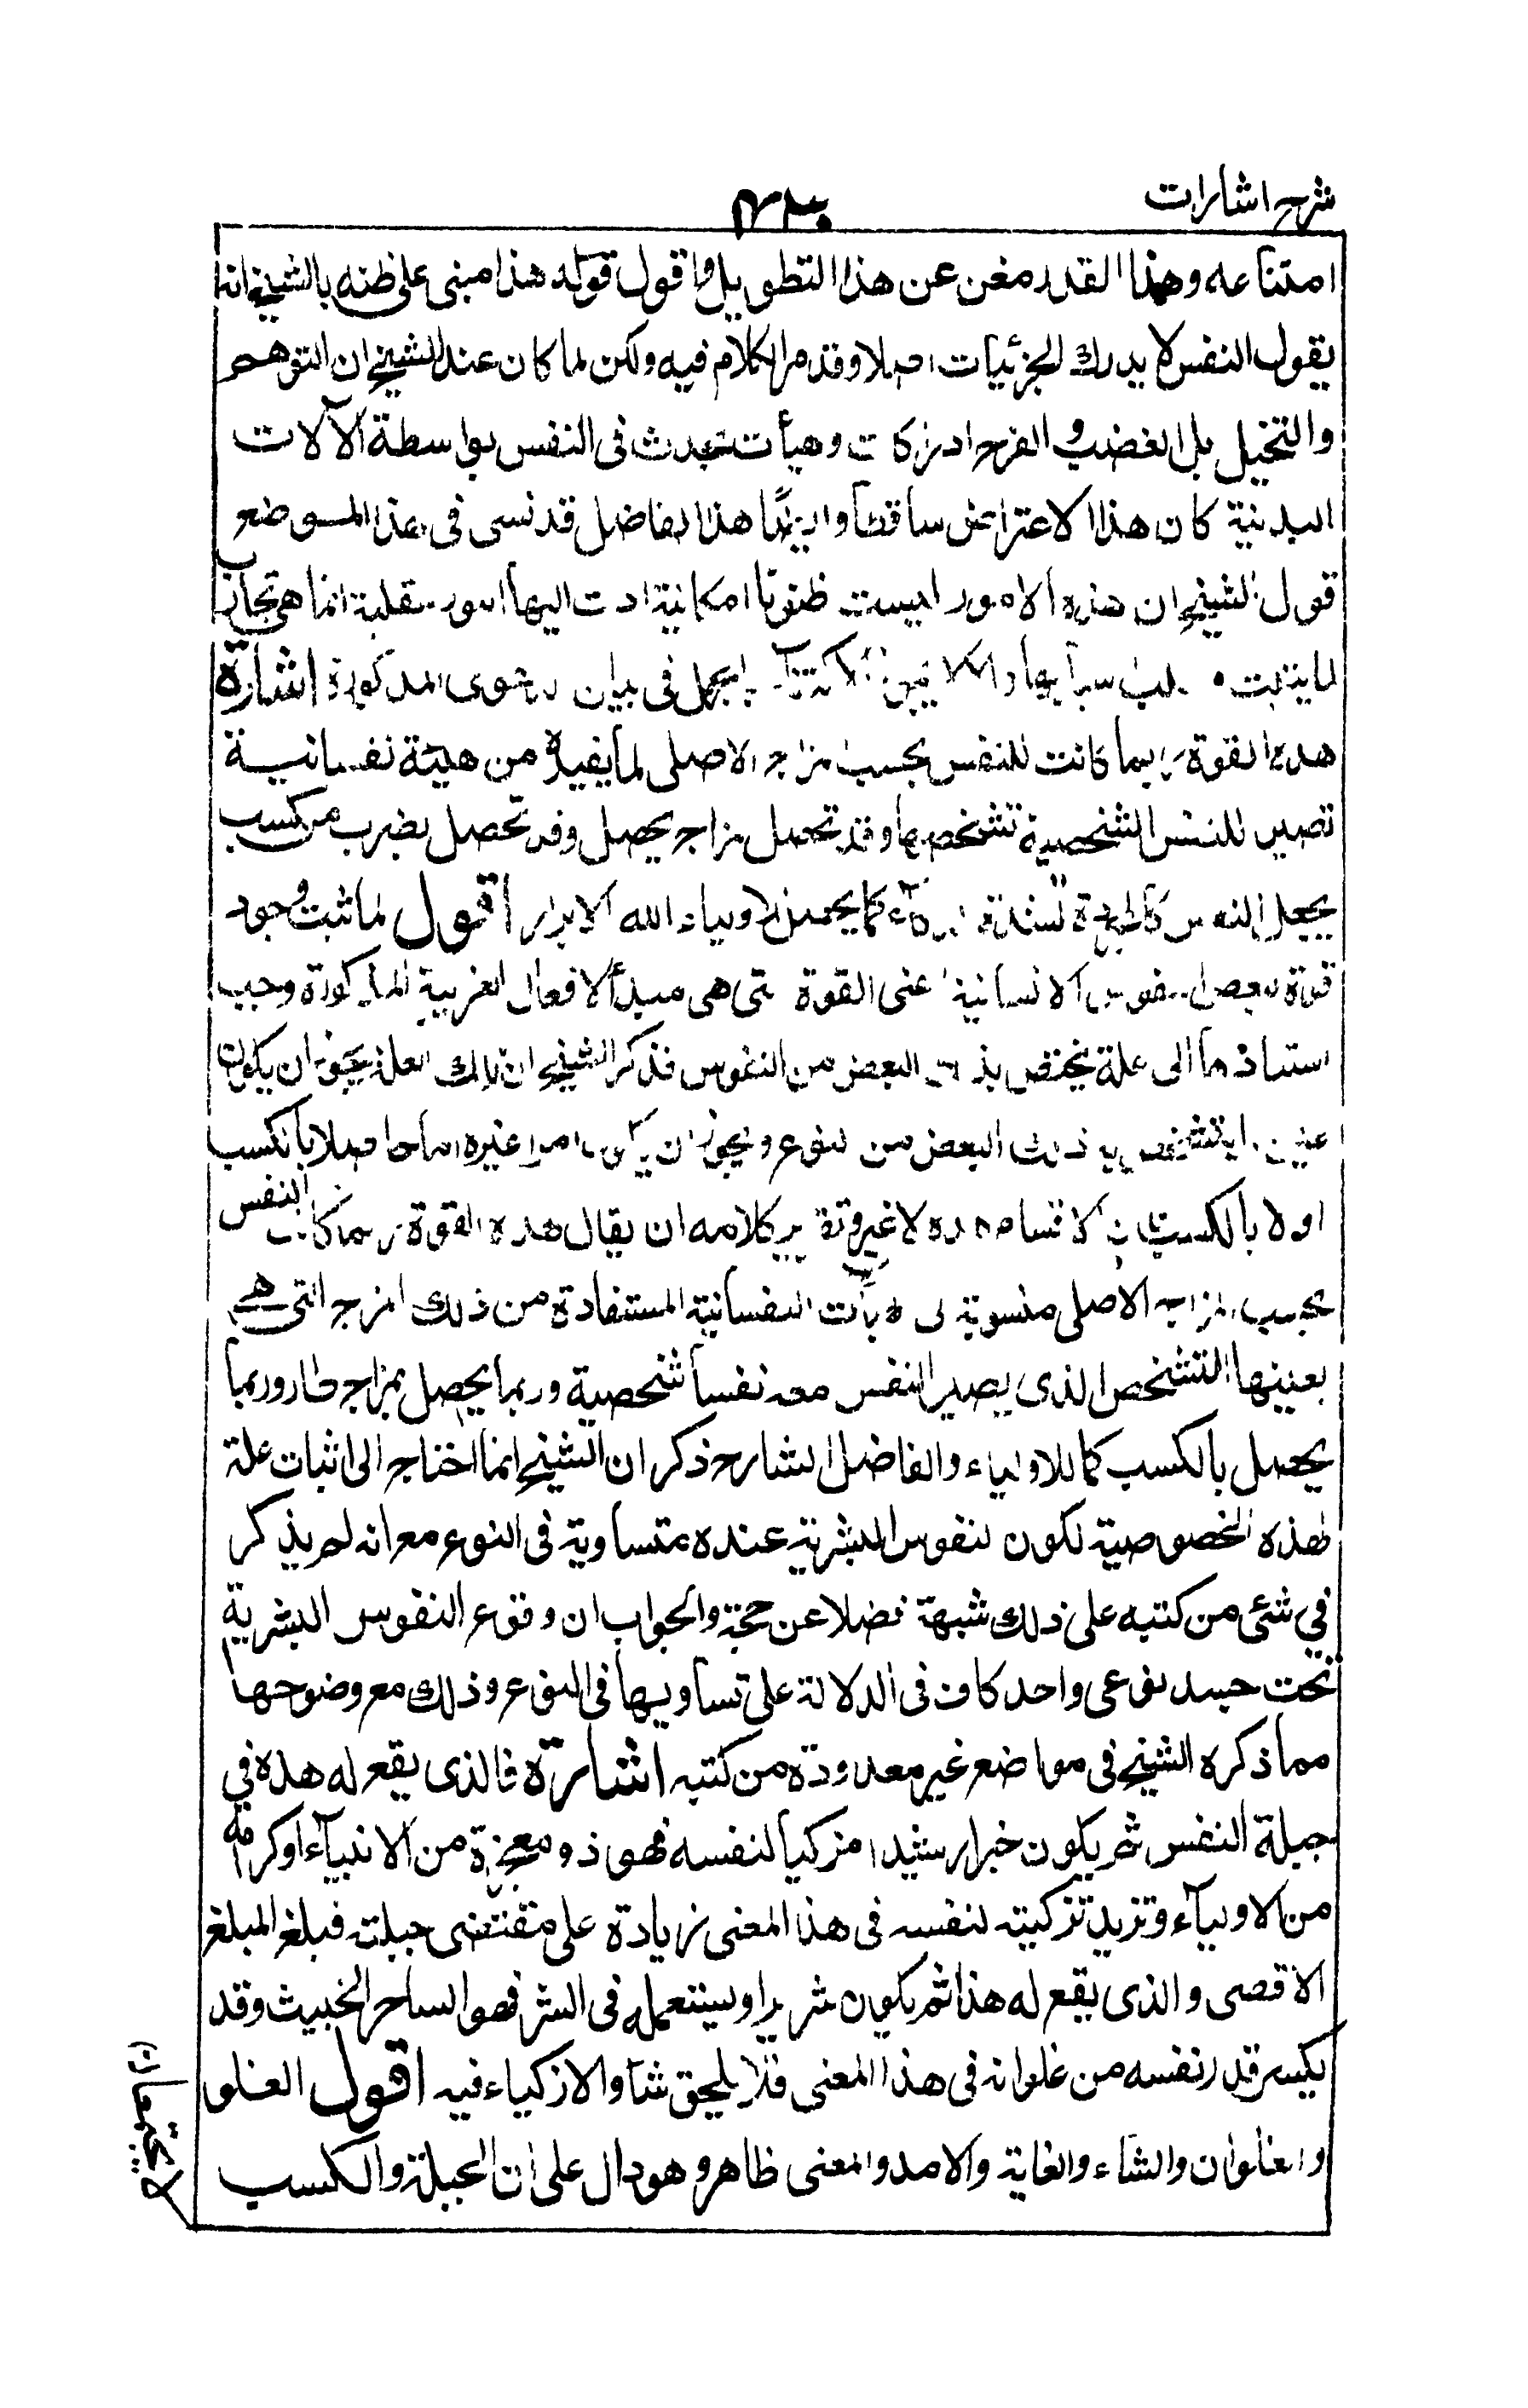 شرح اشارات
امتناعه وهذا القدر مغن عن هذا التطويل واقول قوله هذا مبنى على ظنه بالشيخ انه
يقول النفس لا يدرك الجزئيات اصلا وقد مر الكلام فيه ولكن لما كان عند الشيخ ان التوهم
والتخيل بل الغضب و الفرح ادراكات وهيأت تحدث فى النفس بواسطة الآلات
البدنية كان هذا الاعتراض ساقطا وايضًا هذا الفاضل قد نسى فى هذا الموضع
قول الشيخ ان هذه الامور ليست ظنونا امكانية ادت اليها امور عقلية انما هى تجارب
لما ثبتت طلب سبابها فى بيان الدعوى المذكورة اشارة
هذه القوة ربما كانت للنفس بحسب مزاجه الاصلى لما يفيده من هيئة نفسانية
تصير للنفس الشخصية تشخصها وقد تحصل لمزاج يحصل وقد تحصل بضرب من كسب
يجعل النفس كالمجردة لشدة الذكاء كما يحصل لاولياء الله الابرار اقول لما ثبت وجود
قوة لبعض النفوس الانسانية اعنى القوة التى هى مبدأ الافعال الغريبة المذكورة وجب
استنادها الى علة يختص بذلك البعض من النفوس فذكر الشيخ ان تلك العلة يجوز ان يكون
عين ما يتشخص به ذلك البعض من النوع ويجوز ان يكون امرا غيره اما حاصلا بالكسب
او لا بالكسب فان الاقسام هذه لا غير وتقرير كلامه ان يقال هذه القوة ربما كانت للنفس
بحسب المزاج الاصلى منسوبة الى الهيأت النفسانية المستفادة من ذلك المزاج التى هى
بعينها التشخص الذى يصير النفس معه نفسا شخصية وربما يحصل بمزاج طار وربما
يحصل بالكسب كما للاولياء والفاضل الشارح ذكر ان الشيخ انما احتاج الى اثبات علة
لهذه الخصوصية لكون النفوس البشرية عنده متساوية فى النوع مع انه لم يذكر
في شئى من كتبه على ذلك شبهة فضلا عن حجة والجواب ان وقوع النفوس البشرية
تحت حد نوعى واحد كاف فى الدلالة على تساويها فى النوع وذلك مع وضوحها
مما ذكره الشيخ فى مواضع غير معدودة من كتبه اشارة فالذى يقع له هذه في
جبلة النفس ثم يكون خيرا رشيدا مزكيا لنفسه فهو ذو معجزة من الانبيآء او كرامة
من الاوليآء وتزيد تزكيته لنفسه فى هذا المعنى زيادة على مقتضى جبلته فبلغ المبلغ
الاقصى والذى يقع له هذا ثم يكون شريرا ويستعمله فى الشر فهو الساحر الخبيث وقد
يكسر قدر نفسه من غلوائه فى هذا المعنى فلا يلحق شأو الازكياء فيه اقول الغلو
والغلوان والشاء والغاية والامد والمعنى ظاهر وهو دال على ان الجبلة والكسب